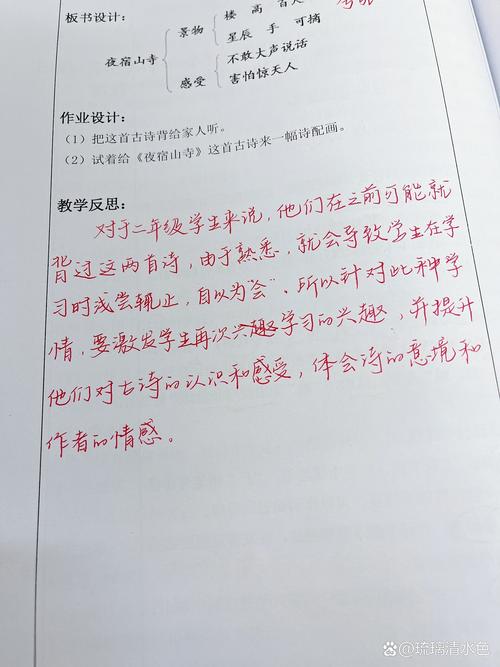 板书设计：
楼 高 百
景物
星辰 手 可摘
夜宿山寺
不敢大声说话
感受
害怕惊天人
作业设计：
（1）把这首古诗背给家人听。
（2）试着给《夜宿山寺》这首古诗来一幅诗配画。
教学反思：
对于二年级学生来说，他们在之前可能就
背过这两首诗，由于熟悉，就会导致学生在学
习时浅尝辄止，自以为"会"、所以针对此种学
情，要激发学生再次兴趣学习的兴趣，并提升
他们对古诗的认识和感受，体会诗的意境和
作者的情感。
Bai百科 @琉璃清水色